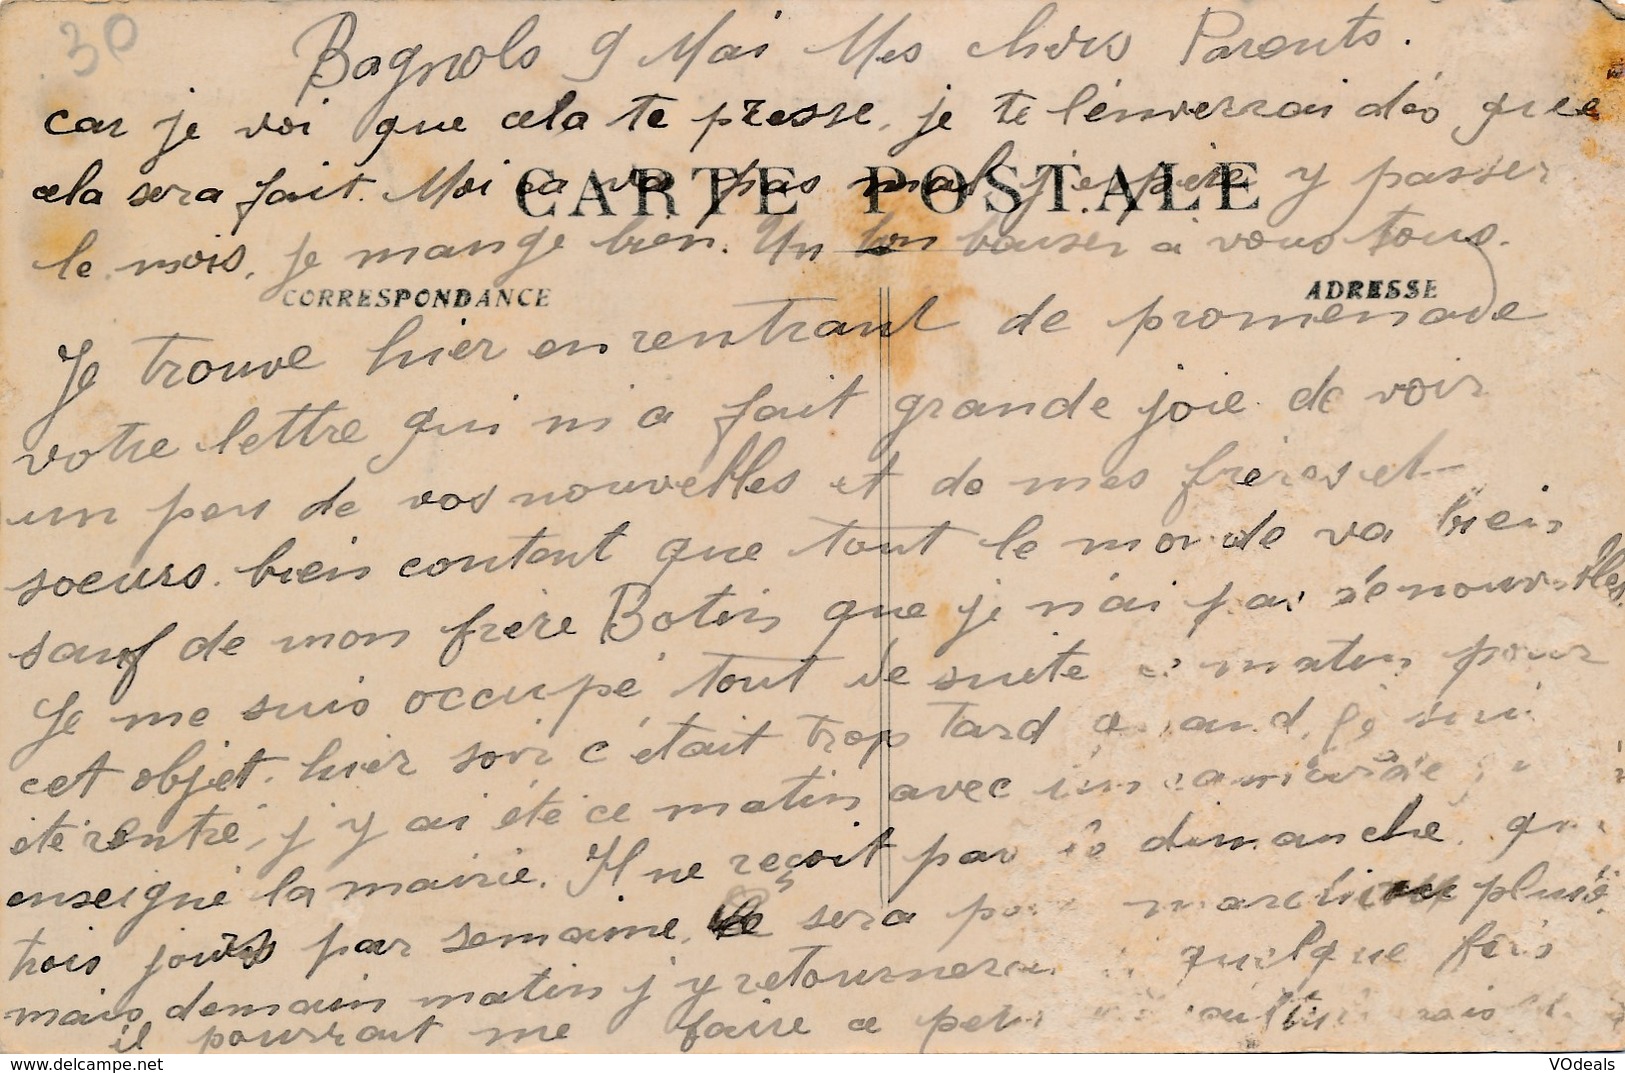 30
Bagnols 9 Mai Mes chers Parents.
car je voi que cela te presse, je te l'enverrai dés que
cela sera fait. Moi ca va pas mal j'espère y passer
CARTE POSTALE
le mois, je mange bien. Un bon baiser à vous tous.
CORRESPONDANCE
ADRESSE
Je trouve hier en rentrant de promenade
votre lettre qui m'a fait grande joie de voir
un peu de vos nouvelles et de mes frères et
soeurs. bien content que tout le monde va bien
sauf de mon frère Botin que je n'ai pas de nouvelles.
Je me suis occupé tout de suite ce matin pour
cet objet. hier soir c'était trop tard quand je suis
été rentré, j'y ai été ce matin avec un camarade
enseigné la mairie. Il ne reçoit pas le dimanche, que
trois jours par semaine, ce sera pour mardi plus
mais demain matin j'y retournerai quelque fois
il pourrait me faire ce
VOdeals